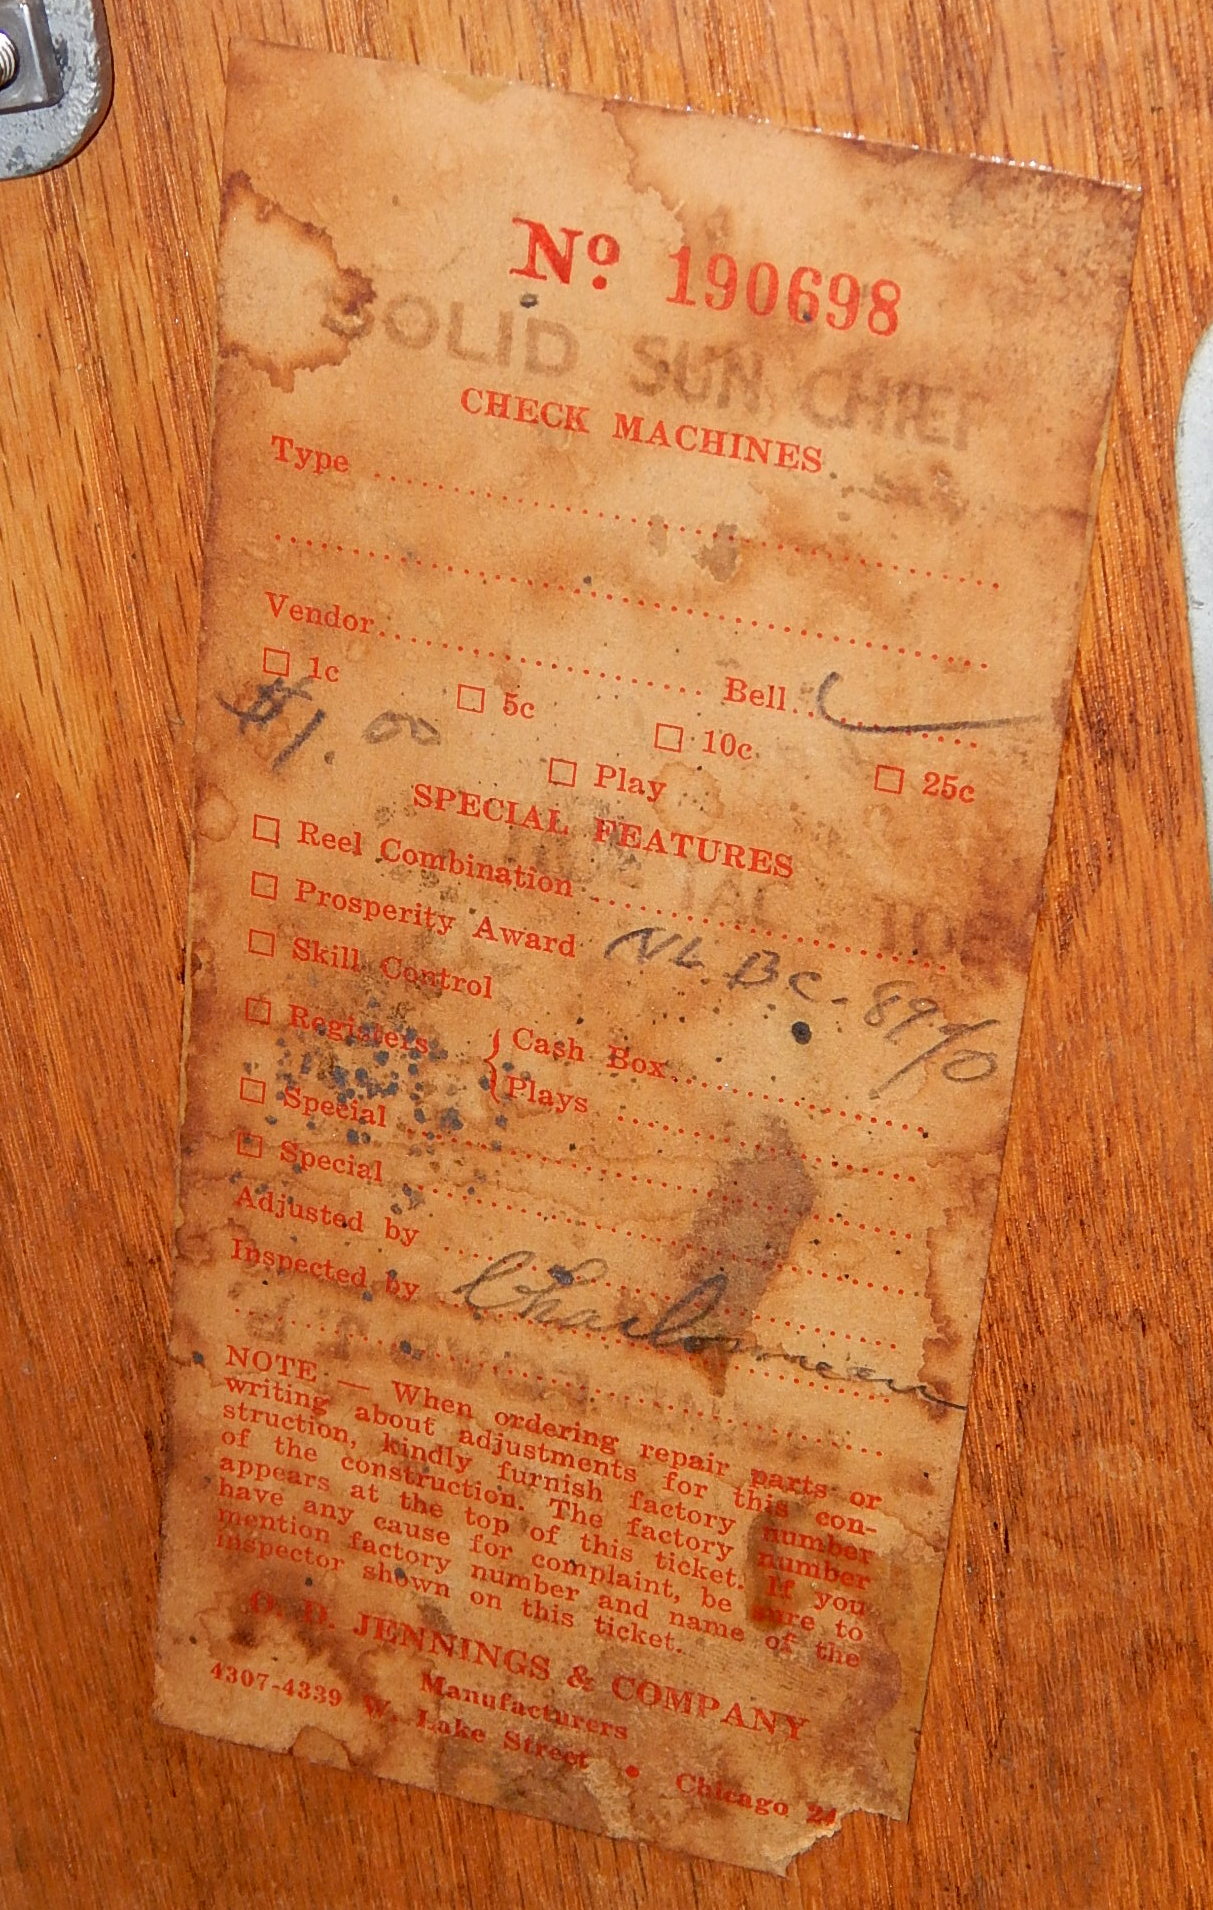 No 190698
SOLID SUN CHIEF
CHECK MACHINES
Type
Vendor Bell
1c 5c 10c 25c
$1.00
Play
SPECIAL FEATURES
Reel Combination
TAC TOE
Prosperity Award NL. BC-89%
Skill Control
Registers { Cash Box
Plays
Special
Special
Adjusted by
Inspected by
NOTE — When ordering repair parts or
writing about adjustments for this con-
struction, kindly furnish factory number
of the construction. The factory number
appears at the top of this ticket. If you
have any cause for complaint, be sure to
mention factory number and name of the
inspector shown on this ticket.
O. D. JENNINGS & COMPANY
Manufacturers
4307-4339 W. Lake Street • Chicago 24